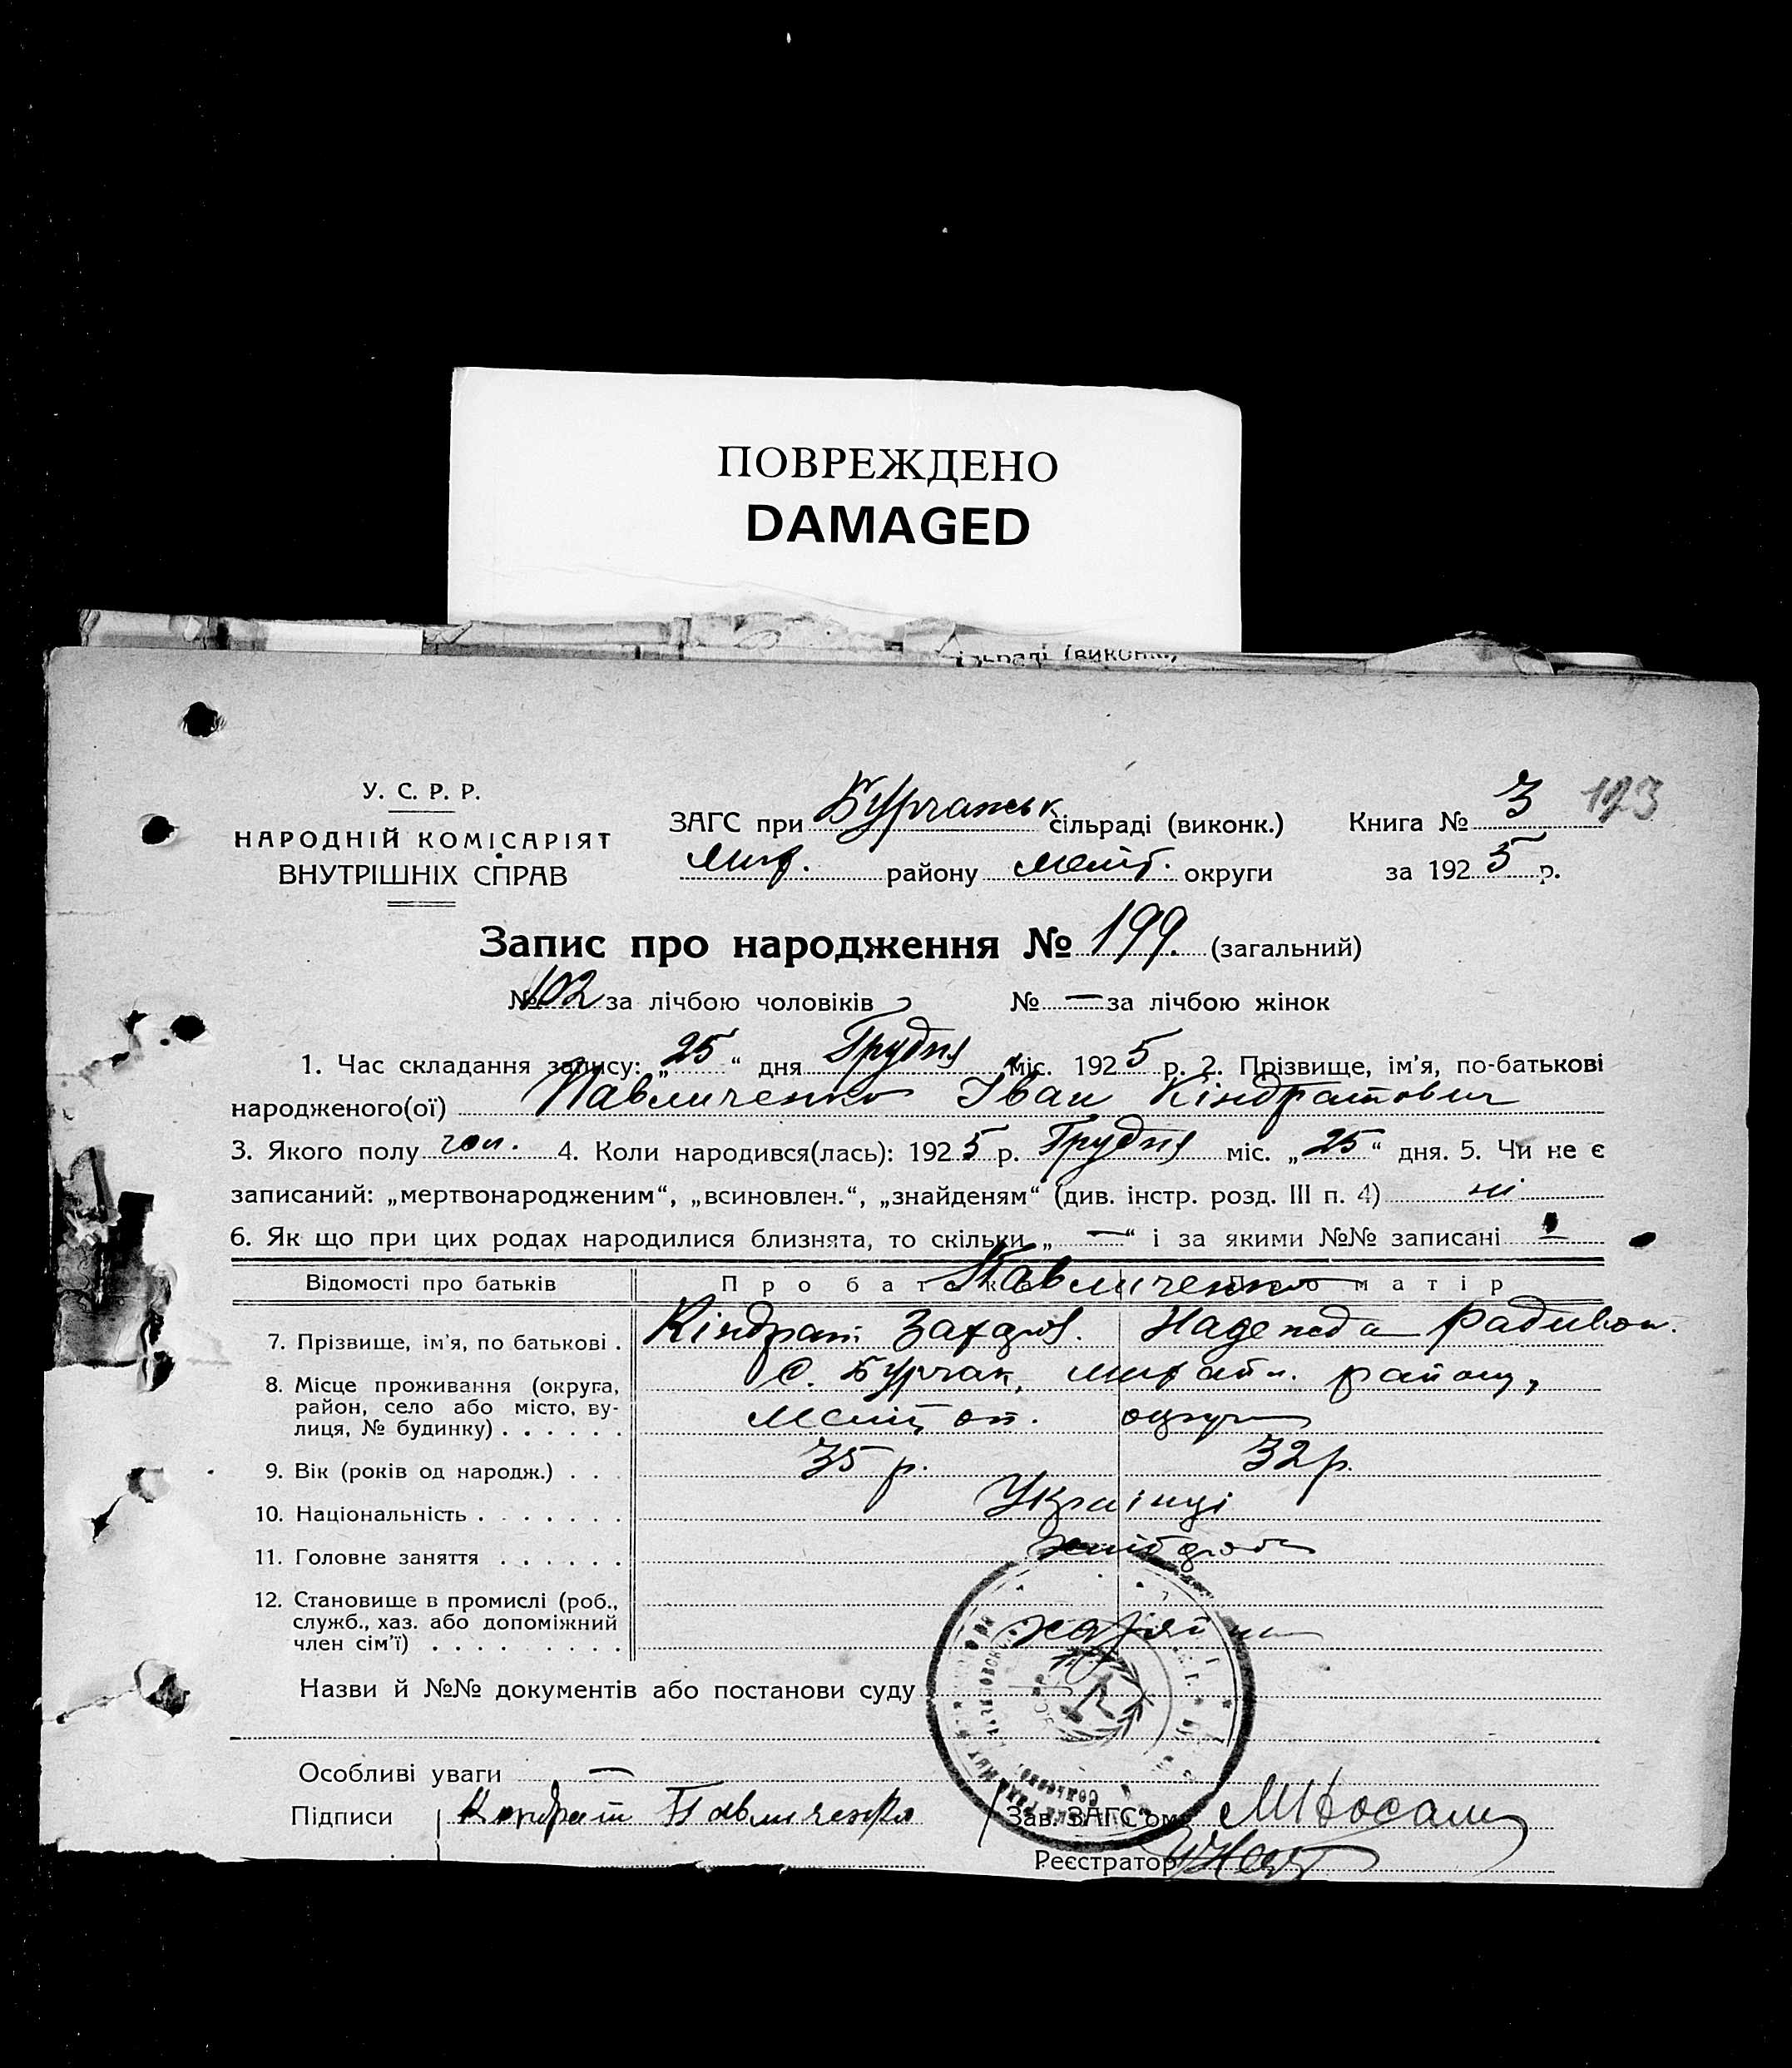 ПОВРЕЖДЕНО
DAMAGED
У. С. Р. Р.
НАРОДНІЙ КОМІСАРІЯТ
ВНУТРІШНІХ СПРАВ
ЗАГС при Бурчанськ сільраді (виконк.)
Мих. району Меліт. округи
Книга № 3 123
за 1925 р.
Запис про народження № 199. (загальний)
№ 102 за лічбою чоловіків № — за лічбою жінок
1. Час складання запису: „25“ дня Грудня міс. 1925 р. 2. Прізвище, ім'я, по-батькові
народженого(ої) Павличенко Іван Кіндратович
3. Якого полу чол. 4. Коли народився(лась): 1925 р. Грудня міс. „25“ дня. 5. Чи не є
записаний: „мертвонародженим“, „всиновлен.“, „знайденям“ (див. інстр. розд. III п. 4) ні
6. Як що при цих родах народилися близнята, то скільки „—“ і за якими №№ записані
Відомості про батьків Про батька Про матір
Павличенко
7. Прізвище, ім'я, по батькові . Кіндрат Надежда Радивон.
8. Місце проживання (округа, район, село або місто, вулиця, № будинку) . . . . . . с. Бурчак, Михайл. району,
Меліտոп. округи
9. Вік (років од народж.) . . . 35 р. 32 р.
10. Національність . . . . . . . Українці
11. Головне заняття . . . . . .
12. Становище в промислі (роб., служб., хаз. або допоміжний член сім'ї) . . . . . . . . .
Назви й №№ документів або постанови суду
Особливі уваги —
Підписи Кондрат Павличенко Зав. ЗАГС'ом
Реєстратор